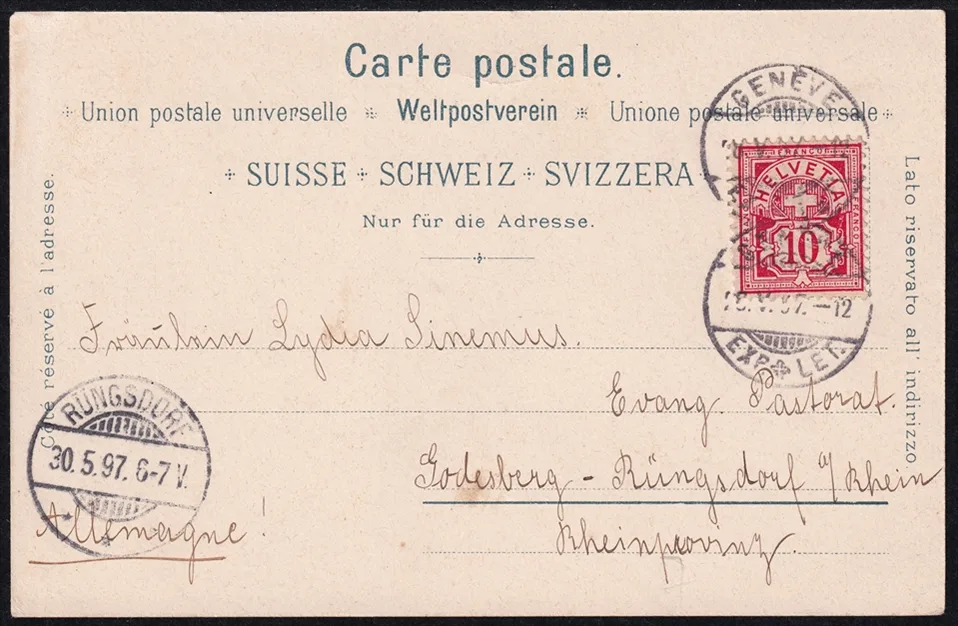 Carte postale.
Union postale universelle * Weltpostverein * Unione postale universale
SUISSE + SCHWEIZ + SVIZZERA
Nur für die Adresse.
Côté réservé à l'adresse.
Lato riservato all' indirizzo
GENÈVE
FRANCO
FRANCO
FRANCO
HELVETIA
10
.V.97.—12
EXP. LET.
Fräulein Lydia Sinemus.
Evang. Pastorat.
Godesberg - Rüngsdorf a/Rhein
Rheinprovinz.
Allemagne!
RÜNGSDORF
30.5.97. 6-7 V.